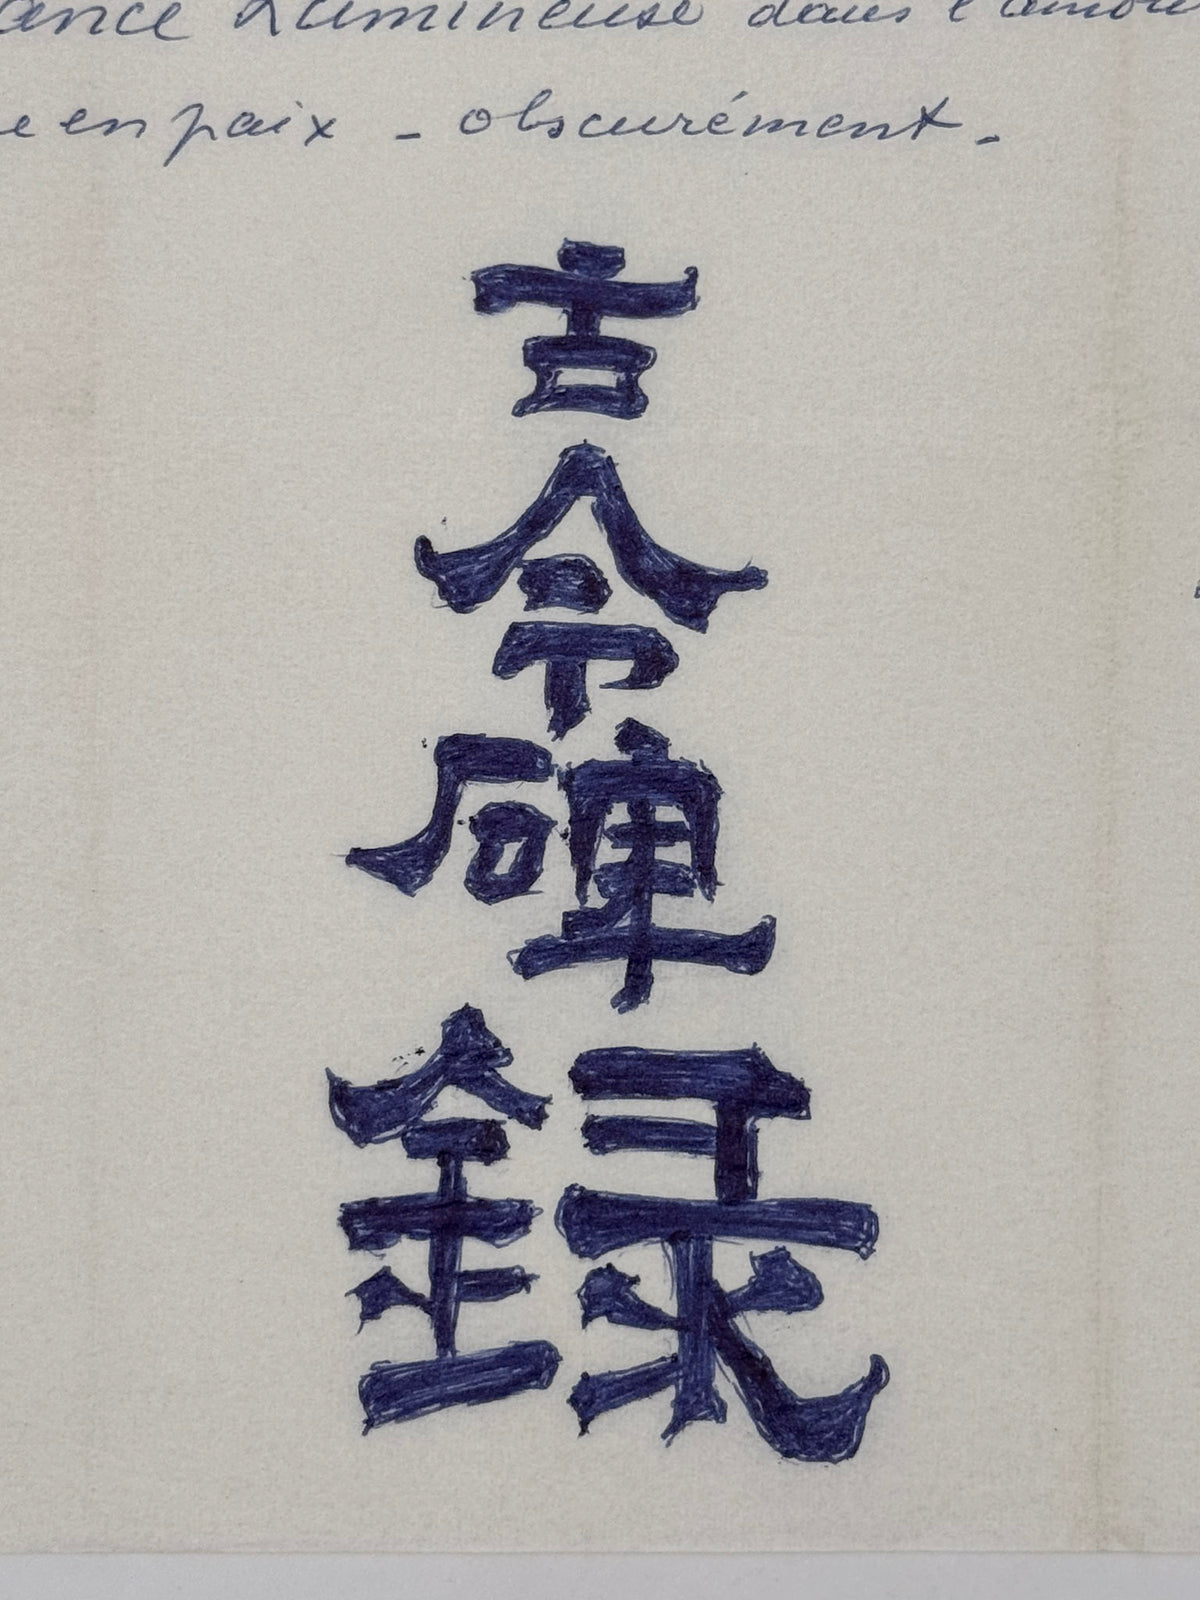 ance Lumineuse dans l'amou
e en paix - obscurément -
古今碑録